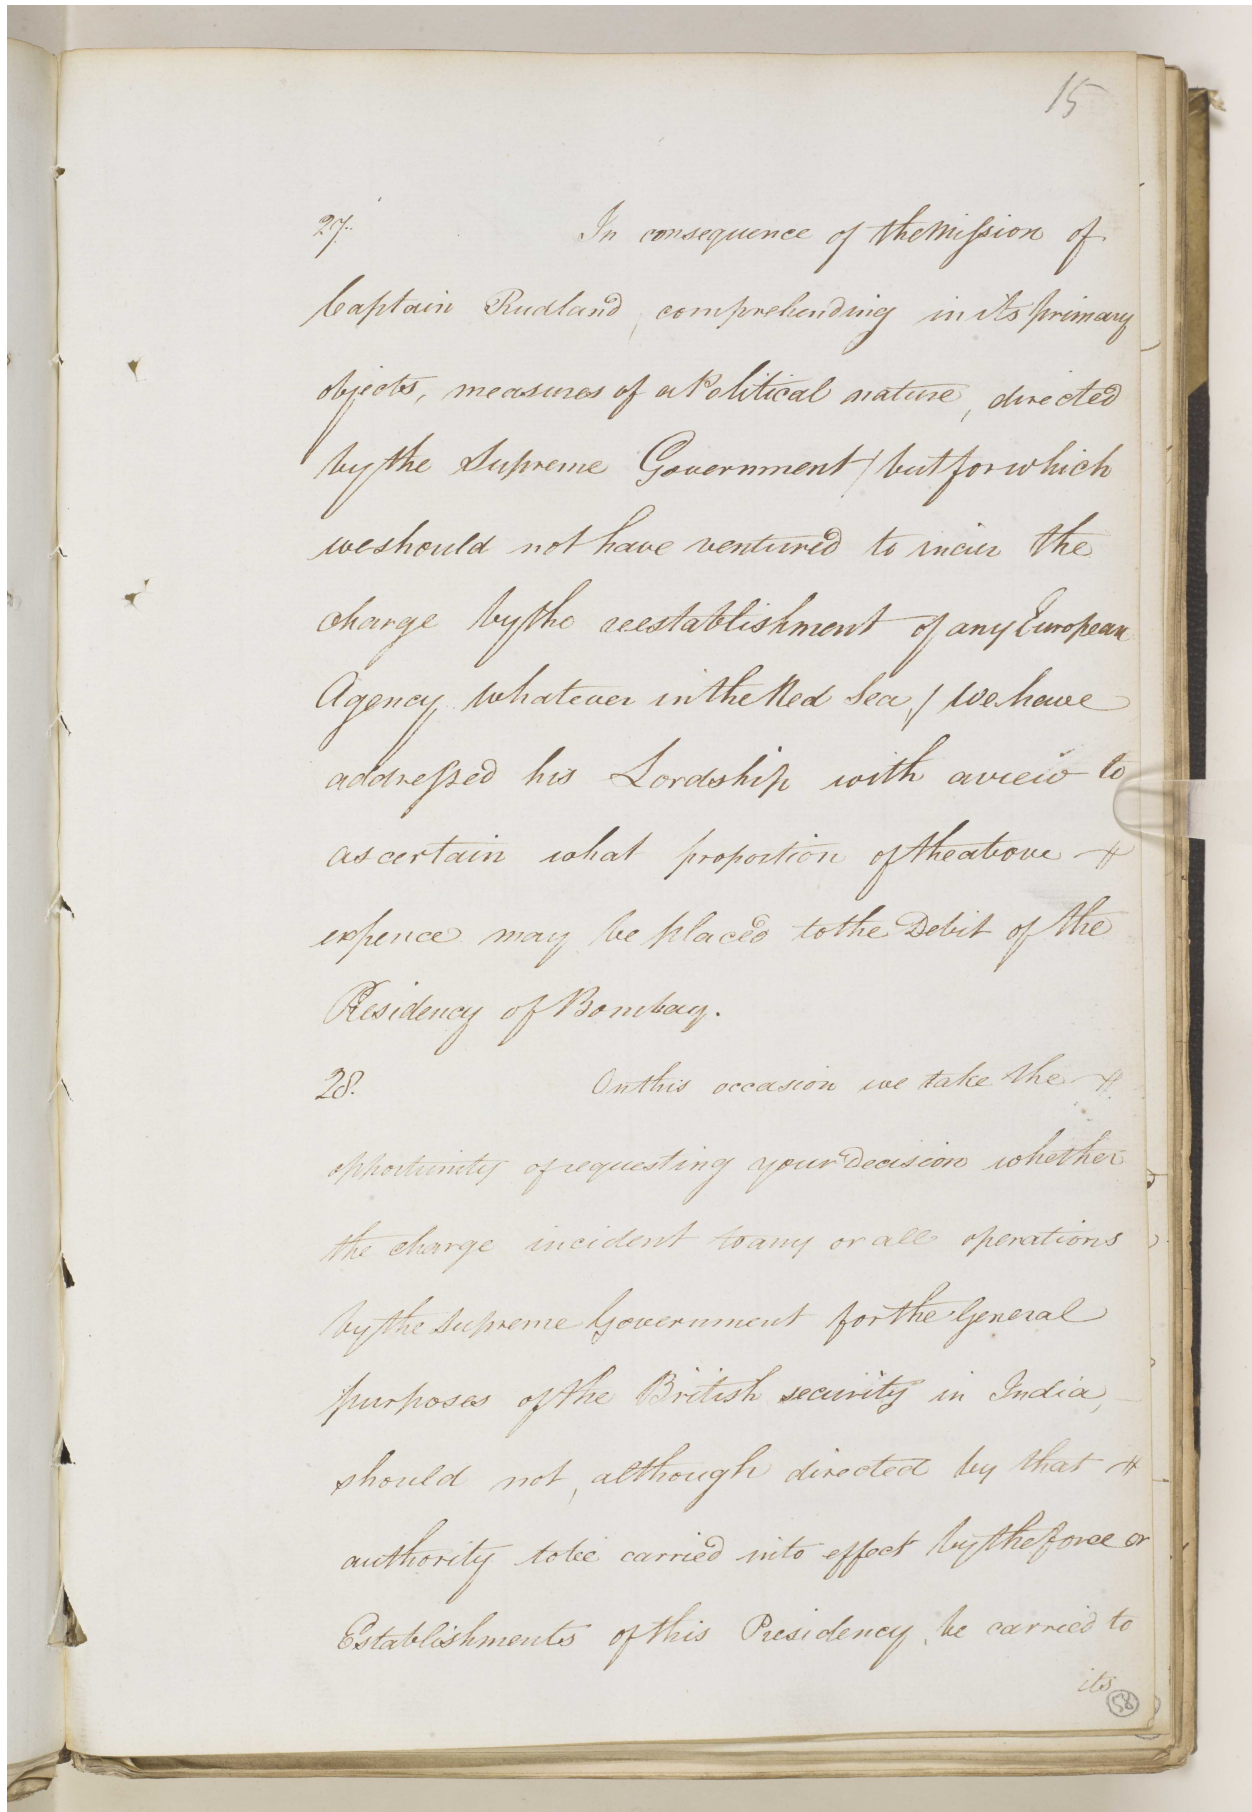 15
27. In consequence of the Mission of
Captain Rudland, comprehending in its primary
objects, measures of a Political nature, directed
by the Supreme Government / but for which
we should not have ventured to incur the
charge by the reestablishment of any European
Agency whatever in the Red Sea, / we have
addressed his Lordship with a view to
ascertain what proportion of the above
expence may be placed to the Debit of the
Presidency of Bombay.
28. On this occasion we take the
opportunity of requesting your Decision whether
the charge incident to any or all operations
by the Supreme Government for the General
purposes of the British security in India,
should not, although directed by that
authority to be carried into effect by the force or
Establishments of this Presidency, be carried to
its
58